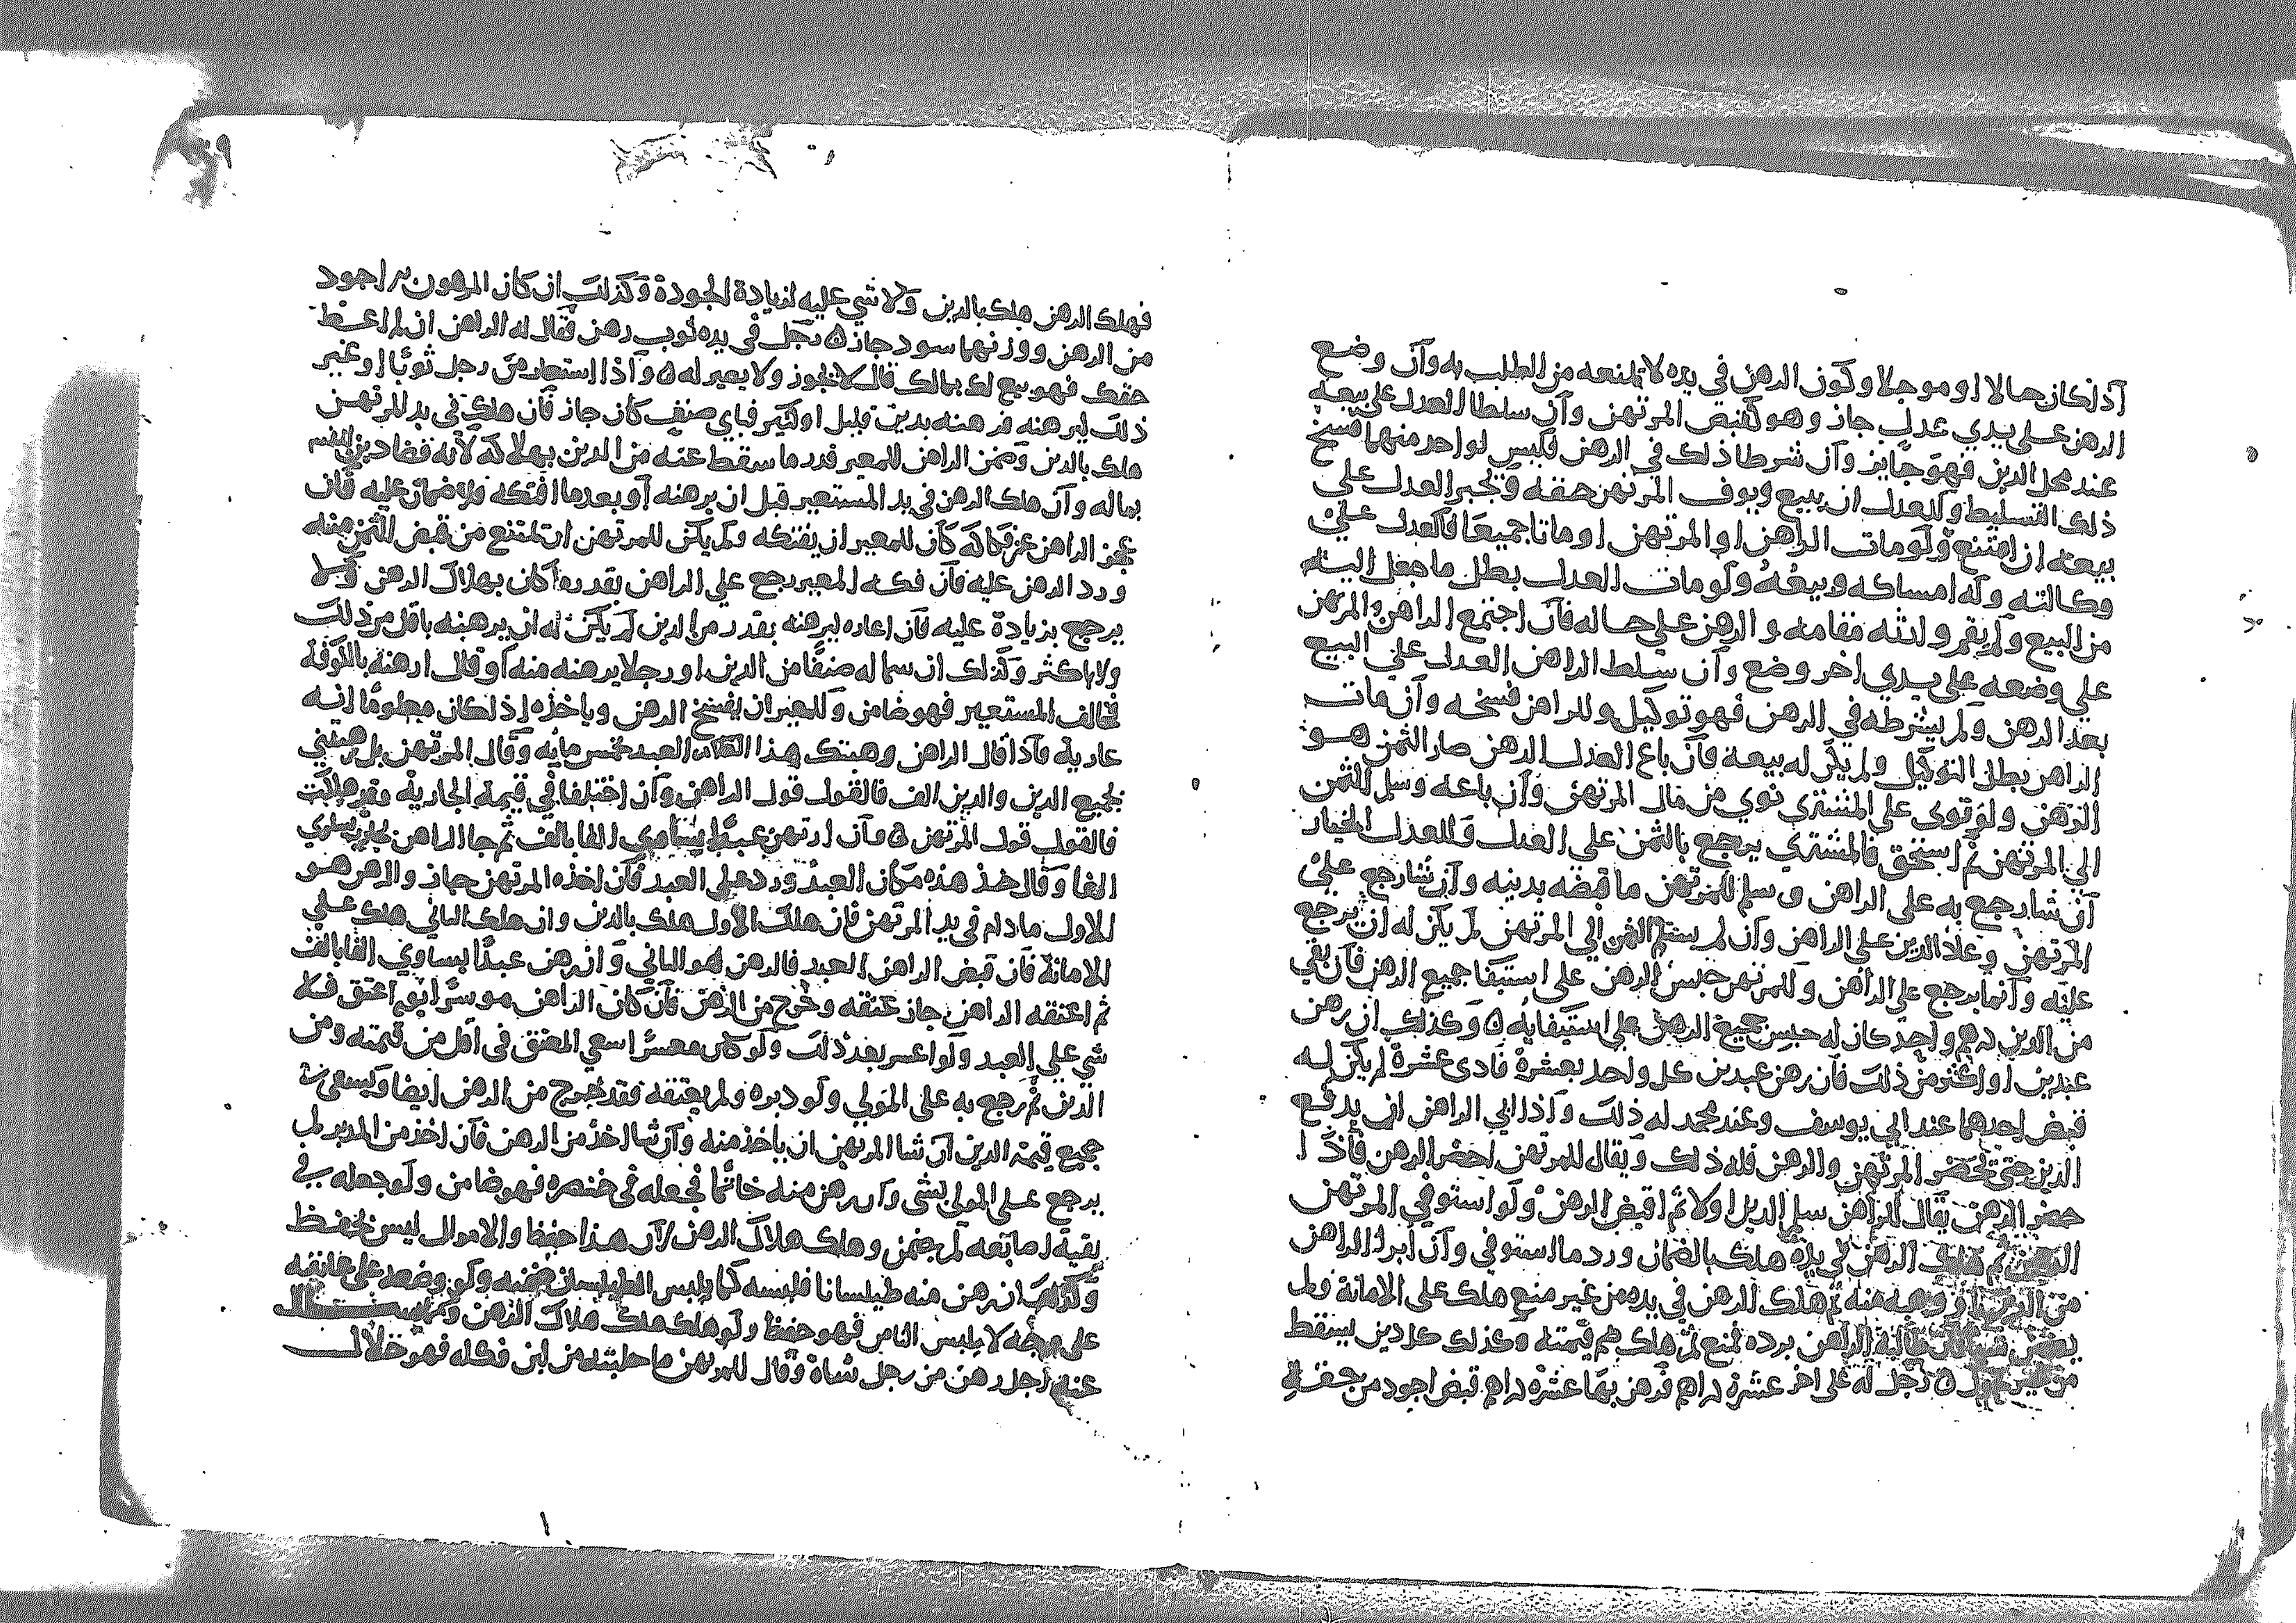 اذا كان حالا او موجلا وكون الرهن في يده لا تمنعه من الطلب به وان وضع
الرهن على يدي عدل جاز وهو كقبض المرتهن وان سلطا العدل على بيعه
عند محل الدين فهو جايز وان شرطا ذلك في الرهن فليس لواحد منهما فسخ
ذلك التسليط وللعدل ان يبيع ويوف المرتهن حقه ويجبر العدل على
بيعه ان امتنع ولو مات الراهن او المرتهن او ماتا جميعا فالعدل على
وكالته وله امساكه وبيعه ولو مات العدل بطل ما جعل اليه
من البيع ولم يقم وارثه مقامه والرهن على حاله فان اجتمع الراهن والمرتهن
على وضعه على يدي اخر وضع وان سلط الراهن العدل على البيع
بعد الرهن ولم يشرطه في الرهن فهو توكيل وللراهن فسخه وان مات
الراهن بطل التوكيل ولم يكن له بيعه فان باع العدل الرهن صار الثمن هو
الرهن ولو توى على المشتري توي من مال المرتهن وان باعه وسلم الثمن
الى المرتهن ثم استحق فالمشتري يرجع بالثمن على العدل وللعدل الخيار
ان شا رجع به على الراهن وسلم للمرتهن ما قبضه بدينه وان شا رجع على
المرتهن وعاد الدين على الراهن وان لم يسلم الثمن الى المرتهن لم يكن له ان يرجع
عليه وانما يرجع على الراهن وللمرتهن حبس الرهن على استيفا جميع الرهن فان بقي
من الدين درهم واحد كان له حبس جميع الرهن على استيفايه ۞ وكذلك ان رهن
عبدين او اكثر من ذلك فان رهن عبدين كل واحد بعشرة فادى عشرة لم يكن له
قبض احدهما عند ابي يوسف وعند محمد له ذلك واذا ابي الراهن ان يدفع
الدين حتى تحضر المرتهن والرهن فله ذلك ويقال للمرتهن احضر الرهن فاذا
حضر الرهن يقال للراهن سلم الدين اولا ثم اقبض الرهن ولو استوفي المرتهن
ثم هلك الرهن في يده هلك بالضمان ورد ما استوفي وان ابرا الراهن
من الدين او وهبه منه ثم هلك الرهن في يده من غير منع هلك على الامانة ولم
يضمن شيا فان طالبه الراهن برده فمنع ثم هلك ضم قيمته وكذلك كل دين يسقط
من غير ۞ رجل له على اخر عشرة دراهم فرهن بها عشرة دراهم قبض اجود من حقه
فهلك الرهن هلك بالدين ولا شي عليه لزيادة الجودة وكذلك ان كان المرهون اجود
من الرهن ووزنهما سود جاز ۞ رجل في يده ثوب رهن فقال له الراهن ان لم اعط
حقك فهو بيع لك بمالك قال لا يجوز ولا يصير له ۞ واذا استعار من رجل ثوبا او غير
ذلك ليرهنه فرهنه بدين قليل او كثير فباي صنف كان جاز فان هلك في يد المرتهن
هلك بالدين وضمن الراهن للمعير قدر ما سقط عنه من الدين بهلاكه لانه قضا دين نفسه
بماله وان هلك الرهن في يد المستعير قبل ان يرهنه او بعد ما افتكه فلا ضمان عليه فان
عجز الراهن عن فكاكه كان للمعير ان يفتكه ولم يكن للمرتهن ان تمتنع من قبض الثمن منه
ورد الرهن عليه فان فكه المعير رجع علي الراهن بقدر ما كان بهلاك الرهن ولم
يرجع بزيادة عليه فان اعاره ليرهنه بقدر من الدين لم يكن له ان يرهنه باقل من ذلك
ولا باكثر وكذلك ان سما له صنفا من الدين او رجلا يرهنه منه او قال ارهنه بالكوفة
فخالف المستعير فهو ضامن وللمعير ان يفسخ الرهن وياخذه اذا كان معلوما انه
عارية فاذا قال الراهن رهنتك هذا العبد بخمس مايه وقال المرتهن بل رهنتني
بجميع الدين والدين الف فالقول قول الراهن وان اختلفا في قيمة الجارية وقد هلكت
فالقول قول المرتهن ۞ وان ارتهن عبدا يساوي الفا بالف ثم جا الراهن بجارية تساوي
الفا وقال خذ هذه مكان العبد ورد علي العبد فان اخذه المرتهن جاز والرهن هو
الاول ما دام في يد المرتهن فان هلك الاول هلك بالدين وان هلك الثاني هلك على
الامانة فان قبض الراهن العبد فالرهن هو الثاني وان رهن عبدا يساوي الفا بالف
ثم اعتقه الراهن جاز عتقه وخرج من الرهن فان كان الراهن موسرا يوم اعتق فلا
شي علي العبد ولو اعسر بعد ذلك ولو كان معسرا سعي المعتق في اقل من قيمته ومن
الدين ثم رجع به على المولي ولو دبره ولم يعتقه فقد خرج من الرهن ايضا ويسعى في
جميع قيمة الدين ان شا المرتهن ان ياخذ منه وان شا اخذ من الراهن فان اخذ من المدبر لم
يرجع على المولى بشي وان رهن منه خاتما فجعله في خنصره فهو ضامن ولو جعله في
بقية اصابعه لم يضمن وهلك هلاك الرهن لان هذا حفظ والاموال ليس تحفظ
وكذلك ان رهن منه طيلسانا فلبسه كما يلبس الطيلسان ضمنه ولو وضعه على عاتقيه
على وجه لا يلبس الناس فهو حفظ ولو هلك هلك هلاك الرهن
رجل رهن من رجل شاة وقال للمرتهن ما حلبت من لبن فكله فهو حلال